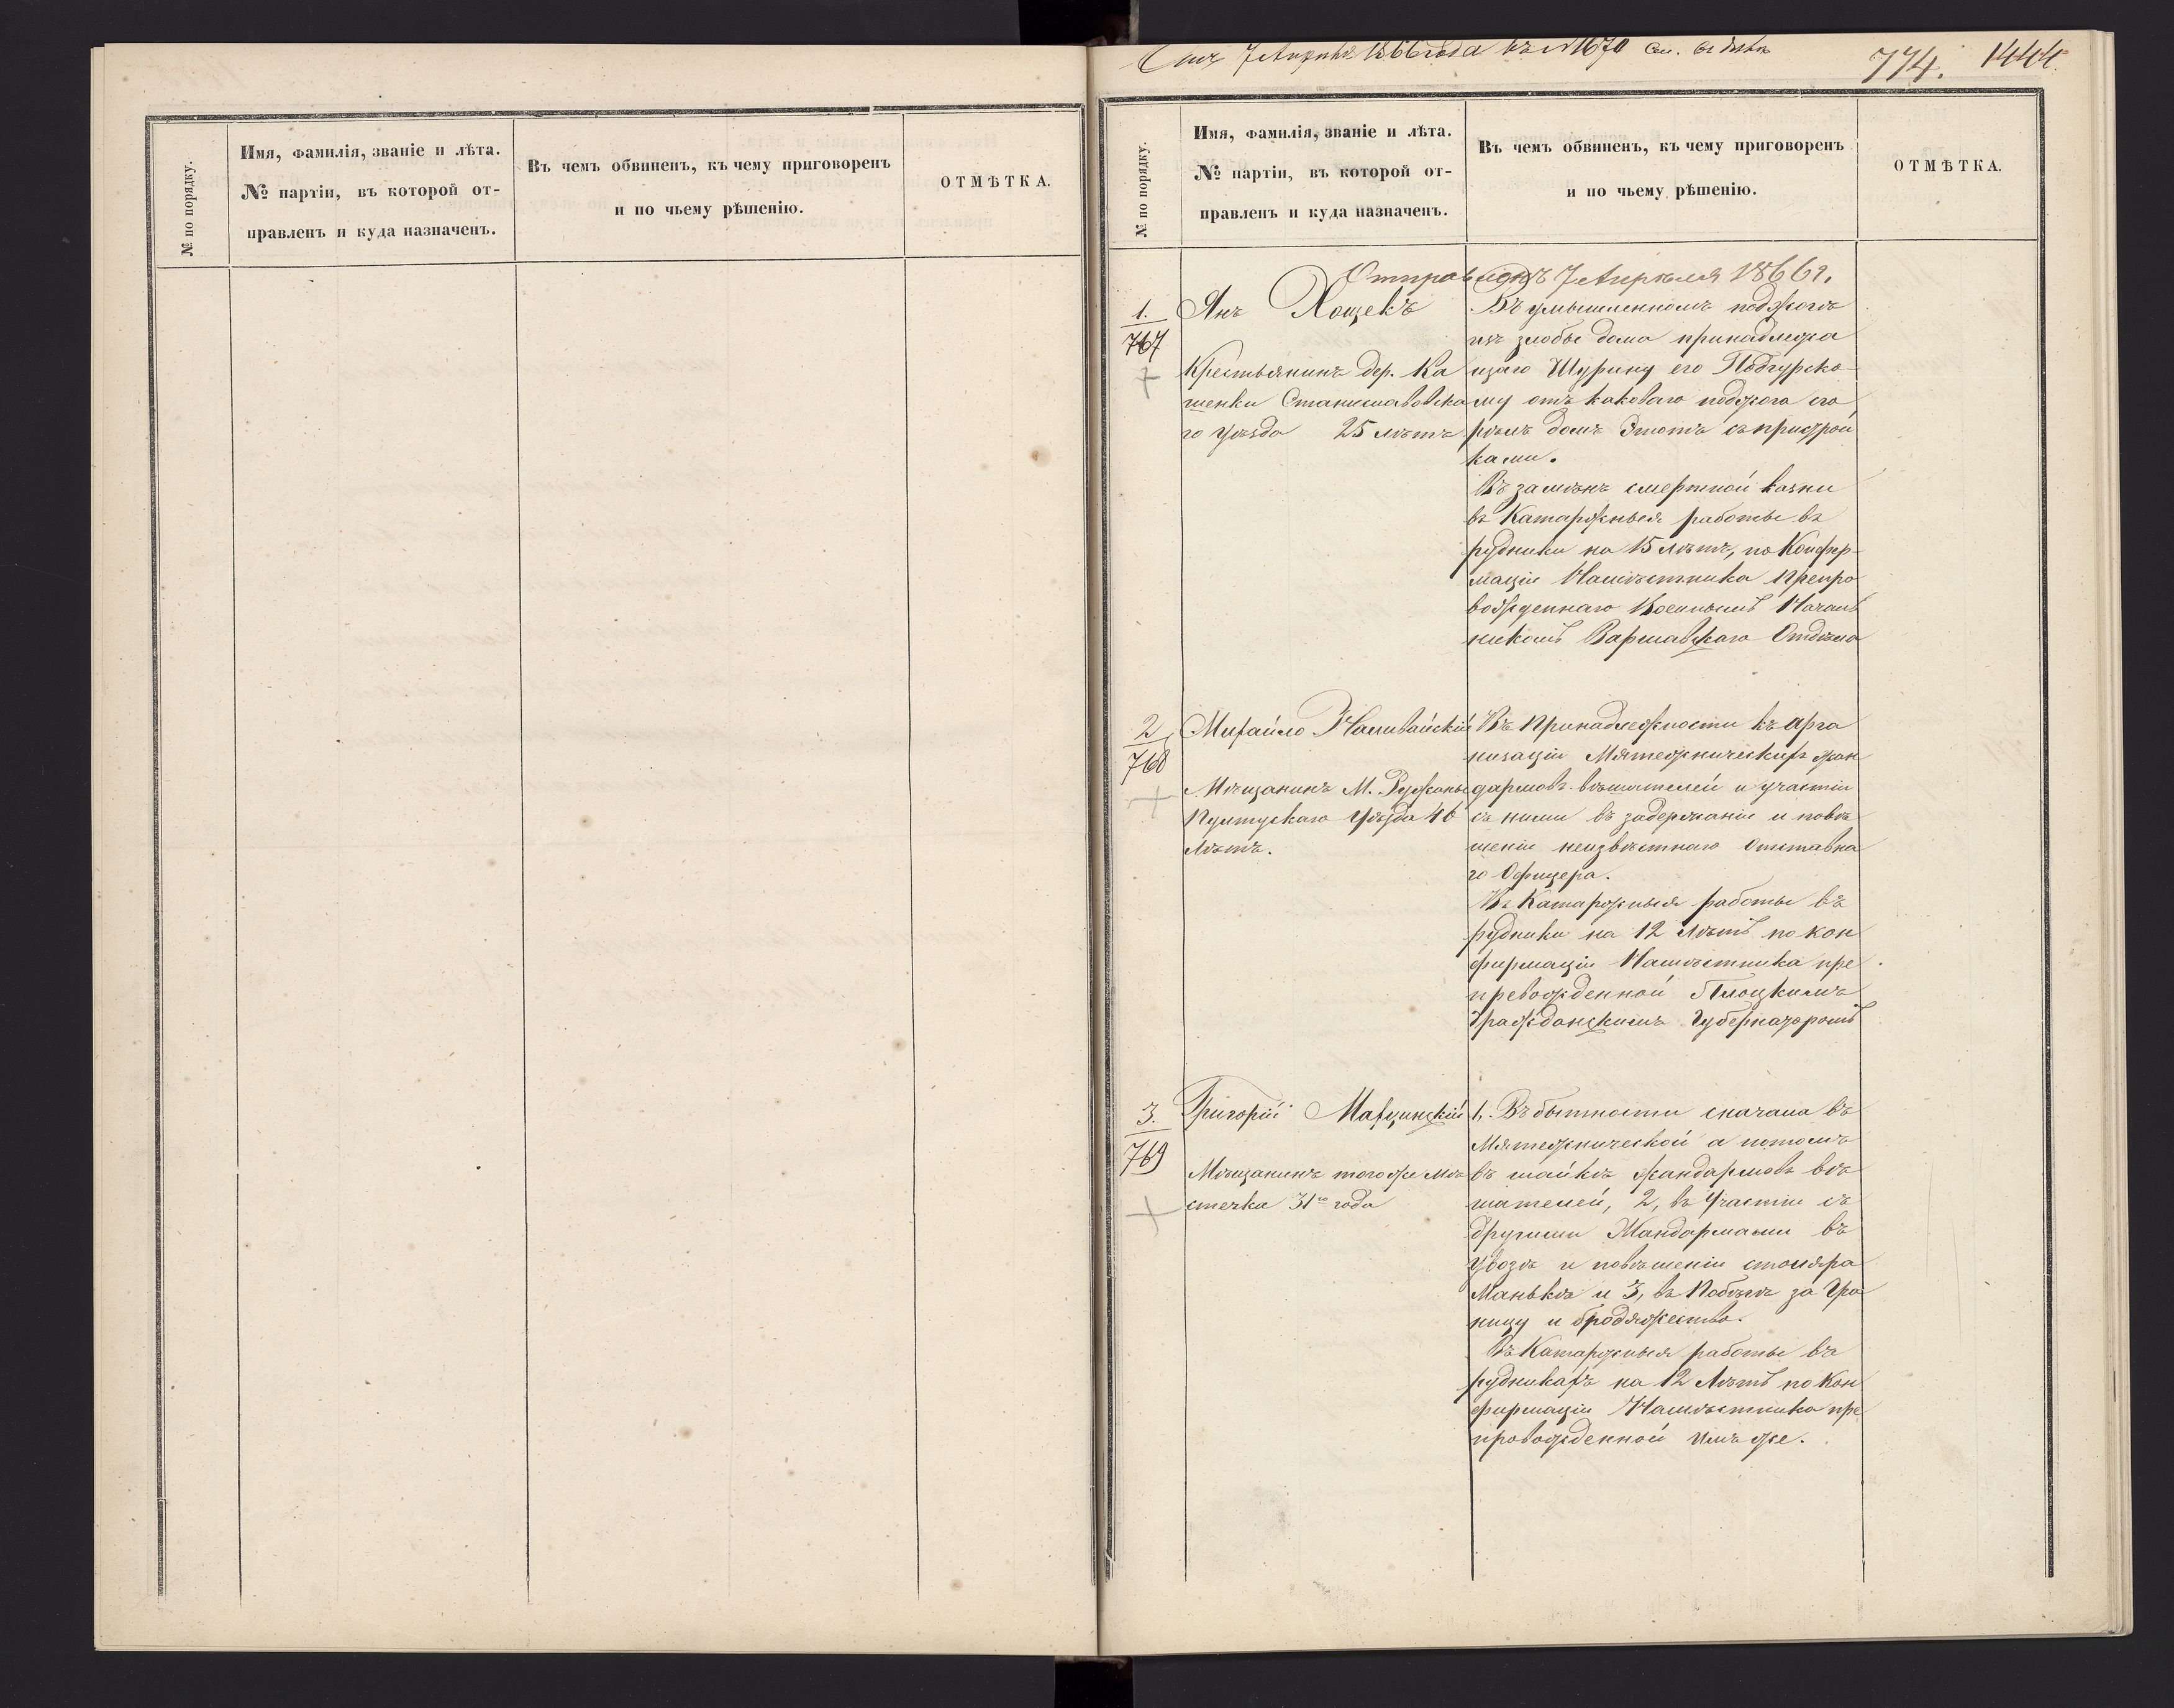 № по порядку.
Имя, фамилія, званіе и лѣта.
№ партіи, въ которой от-
правленъ и куда назначенъ.
Въ чемъ обвиненъ, къ чему приговоренъ
и по чьему рѣшенію.
ОТМѢТКА.
7 Апрѣля 1866 года къ № 1670
774. 1444.
№ по порядку.
Имя, фамилія, званіе и лѣта.
№ партіи, въ которой от-
правленъ и куда назначенъ.
Въ чемъ обвиненъ, къ чему приговоренъ
и по чьему рѣшенію.
ОТМѢТКА.
7 Апрѣля 1866 г.
1.
767
Янъ Хощекъ
Крестьянинъ дер. Ка
шенки Станиславовска
го уѣзда 25 лѣтъ
Въ умышленномъ поджогѣ
изъ злобы дома принадлежа
щаго Шурину его Подгурско-
му отъ каковаго поджога сго
рѣлъ домъ Этотъ съ пристрой
ками.
Въ замѣнъ смертной казни
въ Каторжныя работы въ
рудники на 15 лѣтъ, по Конфир-
маціи Намѣстника препро
вожденнаго Военнымъ Началь
никомъ Варшавскаго Отдѣла
2
768
Михайло Наливайскій
Мѣщанинъ М. Ружаны
Пултускаго Уѣзда 46
лѣтъ.
Въ Принадлежности къ арга
низаціи Мятежническихъ жан
дармовъ вѣшателей и участіи
съ ними въ задержаніи и повѣ
шеніи неизвѣстнаго Отставна
го Офицера.
Въ Каторжныя работы въ
рудники на 12 лѣтъ по кон
фирмаціи Намѣстника пре
превожденной Плоцкимъ
Гражданскимъ Губернаторомъ
3.
769
Григорій Мархинскій
Мѣщанинъ того же мѣ
стечка 31го года
1. Въ бытности сначала въ
Мятежнической а потомъ
въ шайкѣ жандармовъ вѣ
шателей, 2, въ Участіи съ
другими Жандармами въ
увозѣ и повѣшеніи столяра
Манькѣ и 3, въ Побѣгѣ за Гра
ницу и бродяжество.
Въ Каторжныя работы въ
рудникахъ на 12 лѣтъ по Кон
фирмаціи Намѣстника пре
провожденной имъ же.